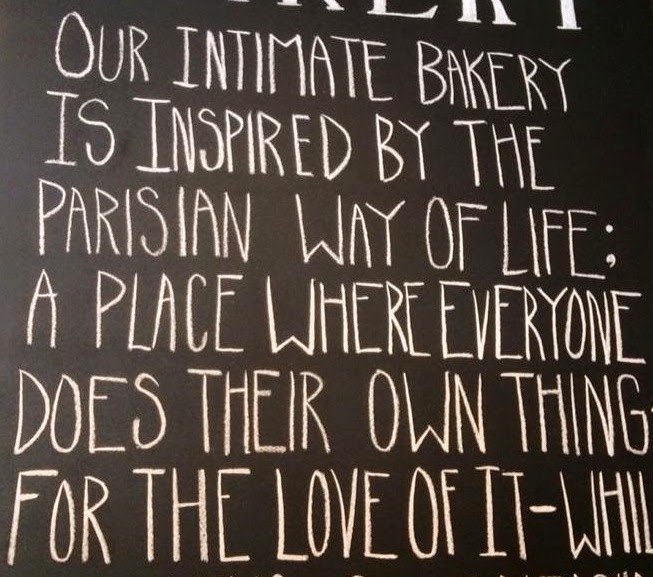 OUR INTIMATE BAKERY
IS INSPIRED BY THE
PARISIAN WAY OF LIFE;
A PLACE WHERE EVERYONE
DOES THEIR OWN THING
FOR THE LOVE OF IT-WHIL